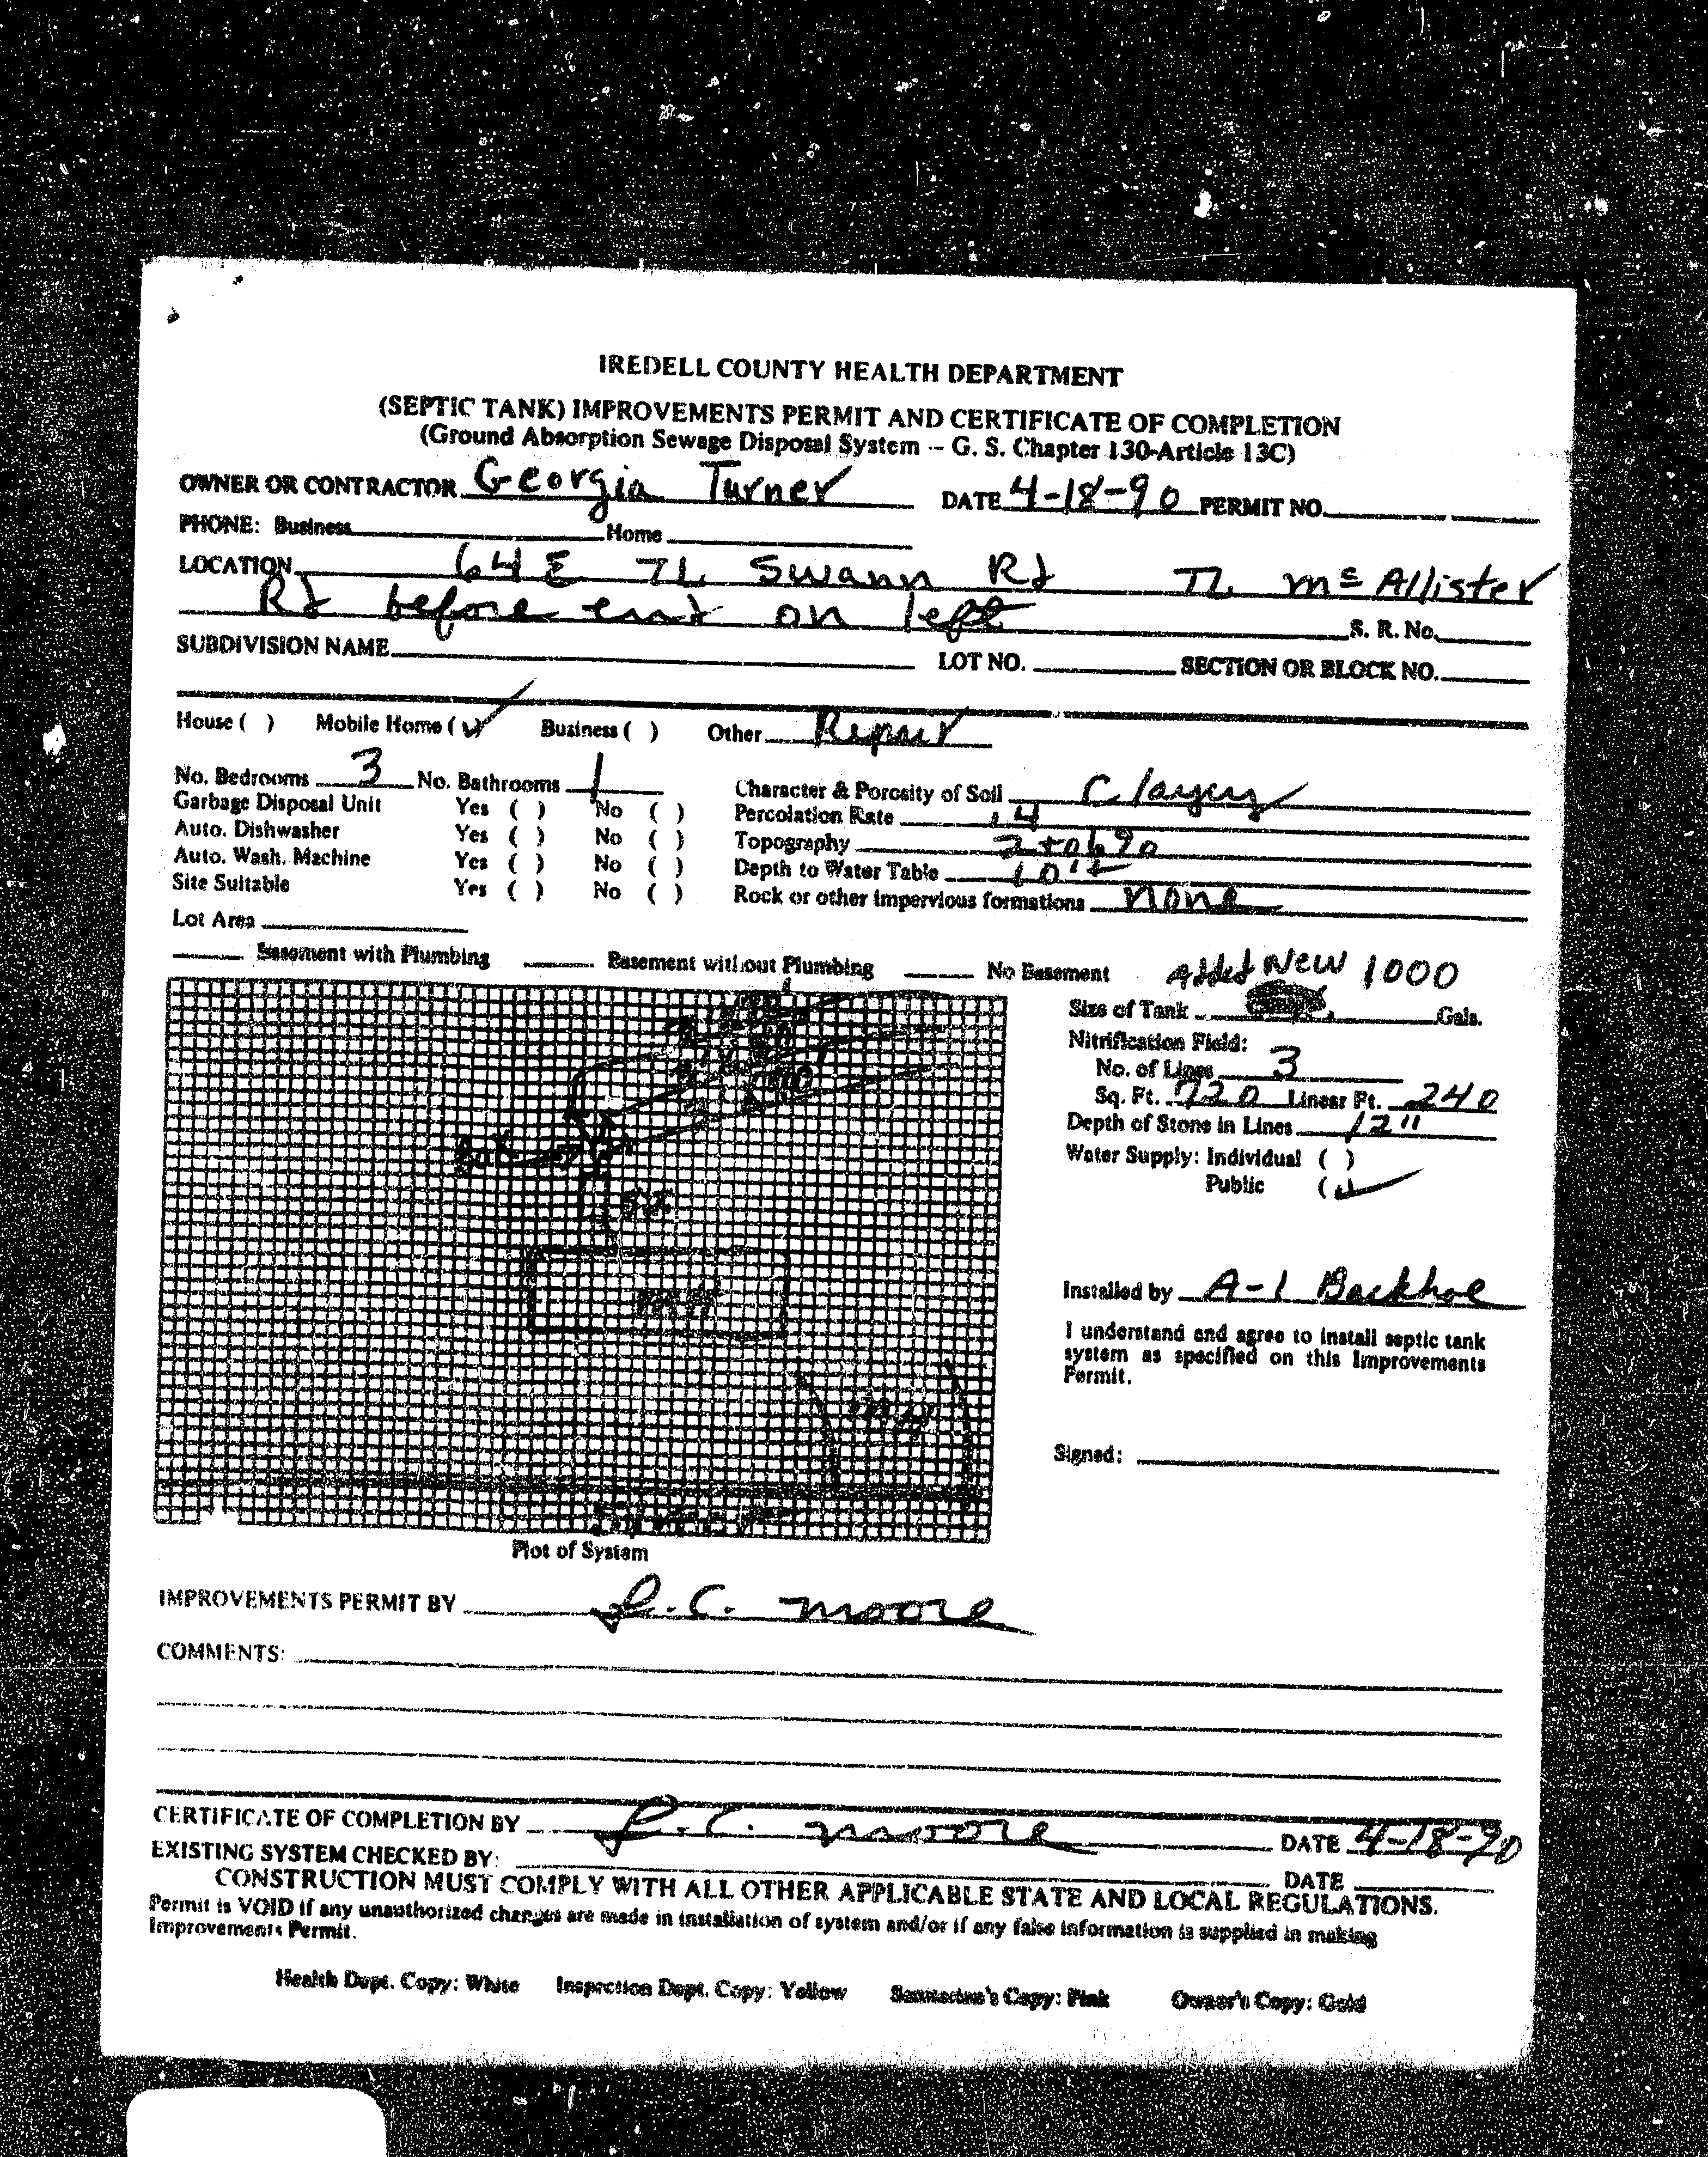 IREDELL COUNTY HEALTH DEPARTMENT
(SEPTIC TANK) IMPROVEMENTS PERMIT AND CERTIFICATE OF COMPLETION
(Ground Absorption Sewage Disposal System -- G. S. Chapter 130-Article 13C)
OWNER OR CONTRACTOR Georgia Turner DATE 4-18-90 PERMIT NO.
PHONE: Business Home
LOCATION 64 E TL Swann Rd TL McAllister
Rd before end on left S. R. No.
SUBDIVISION NAME LOT NO. SECTION OR BLOCK NO.
House ( ) Mobile Home (✓) Business ( ) Other Repair
No. Bedrooms 3 No. Bathrooms 1 Character & Porosity of Soil Clayey
Garbage Disposal Unit Yes ( ) No ( ) Percolation Rate .4
Auto. Dishwasher Yes ( ) No ( ) Topography 2 to 6%
Auto. Wash. Machine Yes ( ) No ( ) Depth to Water Table 10'±
Site Suitable Yes ( ) No ( ) Rock or other impervious formations none
Lot Area
Basement with Plumbing Basement without Plumbing No Basement
Added New 1000
Size of Tank Gals.
Nitrification Field:
No. of Lines 3
Sq. Ft. 720 Linear Ft. 240
Depth of Stone in Lines 12"
Water Supply: Individual ( )
Public (✓)
Installed by A-1 Backhoe
I understand and agree to install septic tank
system as specified on this Improvements
Permit.
Signed:
Plot of System
IMPROVEMENTS PERMIT BY L.C. Moore
COMMENTS:
CERTIFICATE OF COMPLETION BY L.C. Moore DATE 4-18-90
EXISTING SYSTEM CHECKED BY: DATE
CONSTRUCTION MUST COMPLY WITH ALL OTHER APPLICABLE STATE AND LOCAL REGULATIONS.
Permit is VOID if any unauthorized changes are made in installation of system and/or if any false information is supplied in making
Improvements Permit.
Health Dept. Copy: White Inspection Dept. Copy: Yellow Sanitarian's Copy: Pink Owner's Copy: Gold